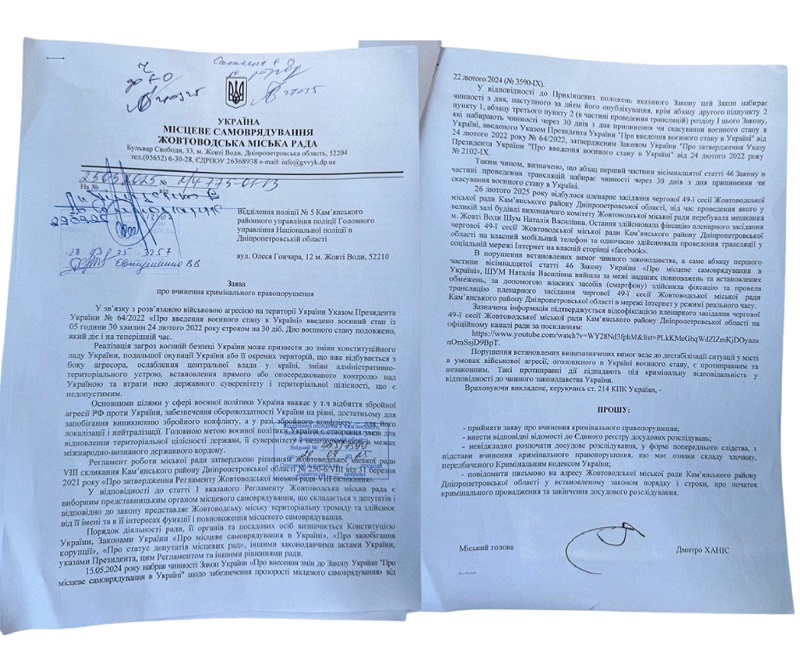 УКРАЇНА
МІСЦЕВЕ САМОВРЯДУВАННЯ
ЖОВТОВОДСЬКА МІСЬКА РАДА
Бульвар Свободи, 33, м. Жовті Води, Дніпропетровська область, 52204
тел.(05652) 6-30-28, ЄДРПОУ 26368938 e-mail: info@gvvyk.dp.ua
На №
Відділення поліції № 5 Кам’янського
районного управління поліції Головного
управління Національної поліції в
Дніпропетровській області
вул. Олеся Гончара, 12 м. Жовті Води, 52210
Заява
про вчинення кримінального правопорушення
У зв’язку з розв’язаною військовою агресією на території України Указом Президента
України № 64/2022 «Про введення воєнного стану в Україні» введено воєнний стан із
05 години 30 хвилин 24 лютого 2022 року строком на 30 діб. Дію воєнного стану подовжено,
який діє і на теперішній час.
Реалізація загроз воєнній безпеці України може призвести до зміни конституційного
ладу України, подальшої окупації України або її окремих територій, що вже відбувається з
боку агресора, ослаблення центральної влади у країні, зміни адміністративно-
територіального устрою, встановлення прямого або опосередкованого контролю над
Україною та втрати нею державного суверенітету і територіальної цілісності, що є
недопустимим.
Основними цілями у сфері воєнної політики Україна вважає у т.ч відбиття збройної
агресії РФ проти України, забезпечення обороноздатності України на рівні, достатньому для
запобігання виникненню збройного конфлікту, а у разі збройного конфлікту – для його
локалізації і нейтралізації. Головною метою воєнної політики України є створення умов для
відновлення територіальної цілісності держави, її суверенітету і недоторканності в межах
міжнародно-визнаного державного кордону.
Регламент роботи міської ради затверджено рішенням Жовтоводської міської ради
VIII скликання Кам’янського району Дніпропетровської області № 250-6/VIII від 31 березня
2021 року «Про затвердження Регламенту Жовтоводської міської ради VIII скликання».
У відповідності до статті 1 вказаного Регламенту Жовтоводська міська рада є
виборним представницьким органом місцевого самоврядування, що складається з депутатів і
відповідно до закону представляє Жовтоводську міську територіальну громаду та здійснює
від її імені та в її інтересах функції і повноваження місцевого самоврядування.
Порядок діяльності ради, її органів та посадових осіб визначається Конституцією
України, Законами України «Про місцеве самоврядування в Україні», «Про запобігання
корупції», «Про статус депутатів місцевих рад», іншими законодавчими актами України,
указами Президента, цим Регламентом та іншими рішеннями ради.
15.05.2024 року набрав чинності Закон України «Про внесення змін до Закону України "Про
місцеве самоврядування в Україні" щодо забезпечення прозорості місцевого самоврядування» від
22 лютого 2024 (№ 3590-IX).
У відповідності до Прикінцевих положень вказаного Закону цей Закон набирає
чинності з дня, наступного за днем його опублікування, крім абзацу другого підпункту 2
пункту 1, абзацу третього пункту 2 (в частині проведення трансляції) розділу I цього Закону,
які набирають чинності через 30 днів з дня припинення чи скасування воєнного стану в
Україні, введеного Указом Президента України "Про введення воєнного стану в Україні" від
24 лютого 2022 року № 64/2022, затвердженим Законом України "Про затвердження Указу
Президента України "Про введення воєнного стану в Україні" від 24 лютого 2022 року
№ 2102-IX.
Таким чином, визначено, що абзац перший частини вісімнадцятої статті 46 Закону в
частині проведення трансляцій набирає чинності через 30 днів з дня припинення чи
скасування воєнного стану в Україні.
26 лютого 2025 року відбулося пленарне засідання чергової 49-ї сесії Жовтоводської
міської ради Кам’янського району Дніпропетровської області, під час проведення якого у
великій залі будівлі виконавчого комітету Жовтоводської міської ради перебувала мешканка
м. Жовті Води Шум Наталія Василівна. Остання здійснювала фіксацію пленарного засідання
чергової 49-ї сесії Жовтоводської міської ради Кам’янського району Дніпропетровської
області на власний мобільний телефон та одночасно здійснювала проведення трансляції у
соціальній мережі Інтернет на власній сторінці «facebook».
В порушення встановлених вимог чинного законодавства, а саме абзацу першого
частини вісімнадцятої статті 46 Закону України «Про місцеве самоврядування в
Україні», ШУМ Наталія Василівна вийшла за межі наданих повноважень та встановлених
обмежень, за допомогою власних засобів (смартфону) здійснила фіксацію та провела
трансляцію пленарного засідання чергової 49-ї сесії Жовтоводської міської ради
Кам’янського району Дніпропетровської області в мережі Інтернет у режимі реального часу.
Зазначена інформація підтверджується відеофіксацією пленарного засідання чергової
49-ї сесії Жовтоводської міської ради Кам’янського району Дніпропетровської області на
офіційному каналі ради за посиланням:
Порушення встановлених вищезазначених вимог веде до дестабілізації ситуації у місті
в умовах військової агресії, оголошеного в Україні воєнного стану, є протиправним та
незаконним. Такі протиправні дії підпадають під кримінальну відповідальність у
відповідності до чинного законодавства України.
Враховуючи викладене, керуючись ст. 214 КПК України, -
ПРОШУ:
- прийняти заяву про вчинення кримінального правопорушення;
- внести відповідні відомості до Єдиного реєстру досудових розслідувань;
- невідкладно розпочати досудове розслідування, у формі попереднього слідства, з
підстави вчинення кримінального правопорушення, що має ознаки складу злочину,
передбаченого Кримінальним кодексом України;
- повідомити письмово на адресу Жовтоводської міської ради Кам’янського району
Дніпропетровської області у встановленому законом порядку і строки, про початок
кримінального провадження та закінчення досудового розслідування.
Міський голова
Дмитро ХАНІС